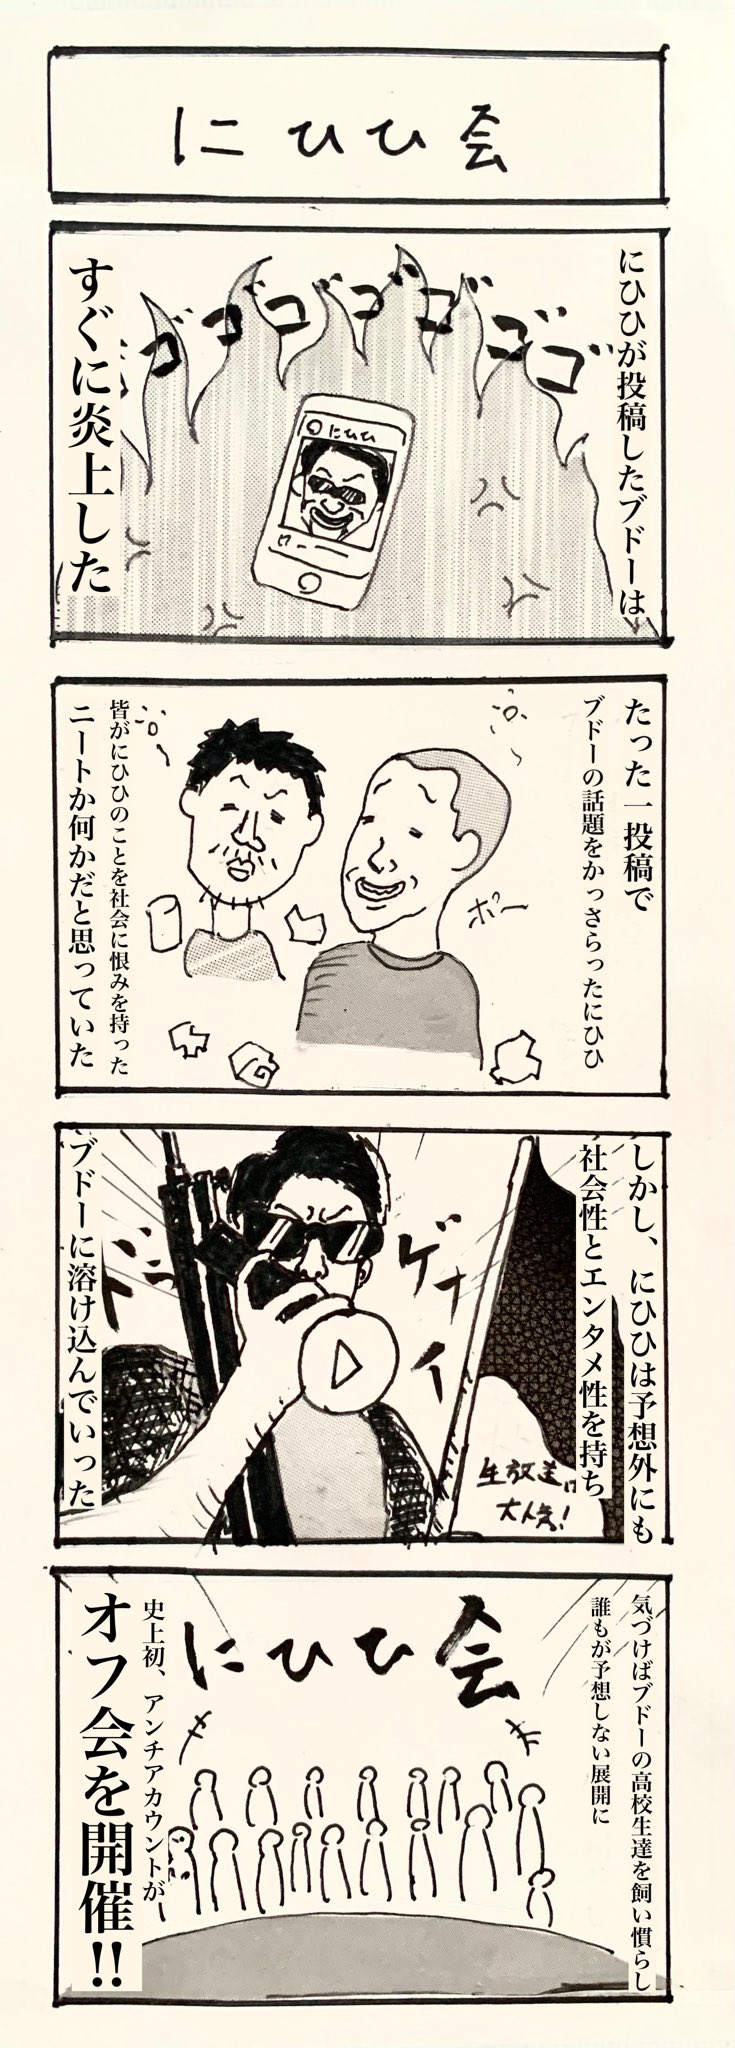 にひひ会
にひひが投稿したブドーは
ゴゴゴゴゴゴゴ
にひひ
すぐに炎上した
たった一投稿で
ブドーの話題をかっさらったにひひ
ボー
皆がにひひのことを社会に恨みを持った
ニートか何かだと思っていた
しかし、にひひは予想外にも
社会性とエンタメ性を持ち
生放送は
大人気!
ブドーに溶け込んでいった
気づけばブドーの高校生達を飼い慣らし
誰もが予想しない展開に
にひひ会
史上初、アンチアカウントが
オフ会を開催!!